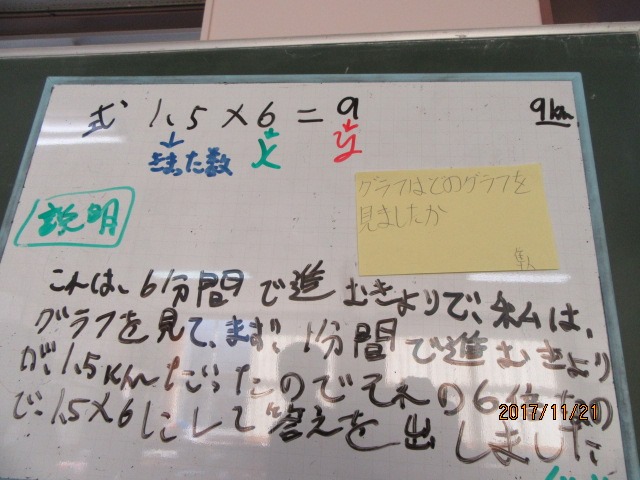 式 1.5×6=9
9km
決まった数 x y
グラフはどのグラフを
見ましたか
説明
これは、6分間で進むきょりで、私は、
グラフを見て、まず、1分間で進むきより
が、1.5kmだったのでそれの6倍なの
で、1.5×6にして答えを出しました
2017/11/21